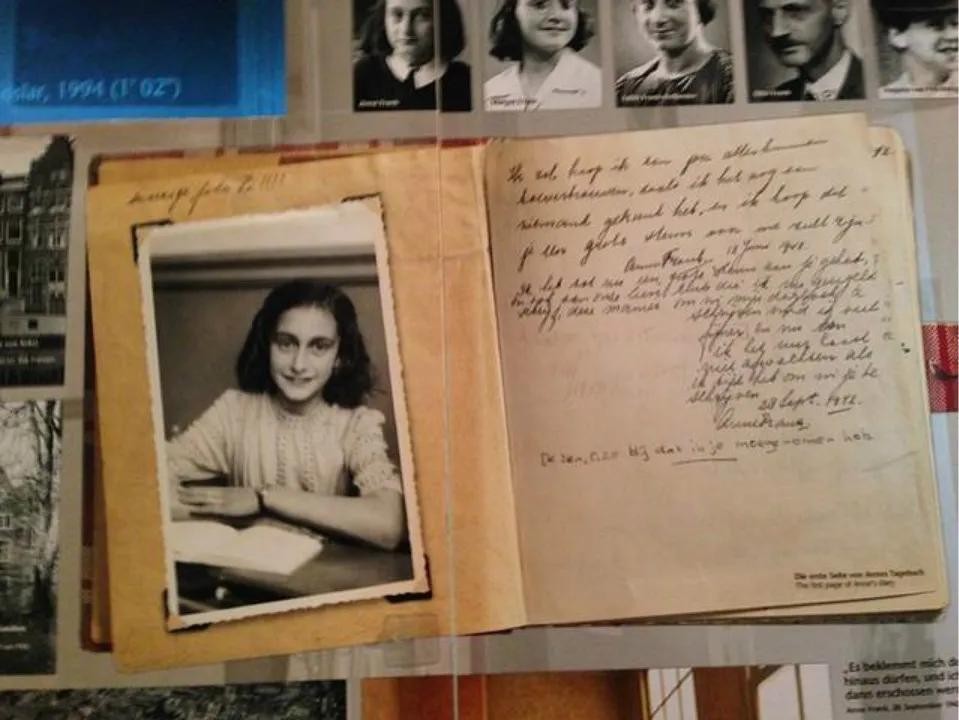 slar, 1994 (1' 02")
Anne Frank
Margot Frank
Otto Frank
12.
Ik zal hoop ik aan jou alles kunnen
toevertrouwen, zoals ik het nog aan
niemand gekund heb, en ik hoop dat
je een grote steun aan me zult zijn.
Anne Frank. 12 Juni 1942.
Ik heb tot nu toe een grote steun aan je gehad,
schrijf, deze manier om in mijn dagboek te
schrijven vind ik veel
fijner en nu kan
ik het uur haast
niet afwachten als
ik tijd heb om in je te
schrijven.
28 Sept. 1942.
Anne Frank.
Ik ben, O, zo blij dat ik je meegenomen heb
Die erste Seite von Annes Tagebuch
The first page of Anne's diary
„Es beklemmt mich d
hinaus dürfen, und ic
dann erschossen wer
Anne Frank, 28. September 194